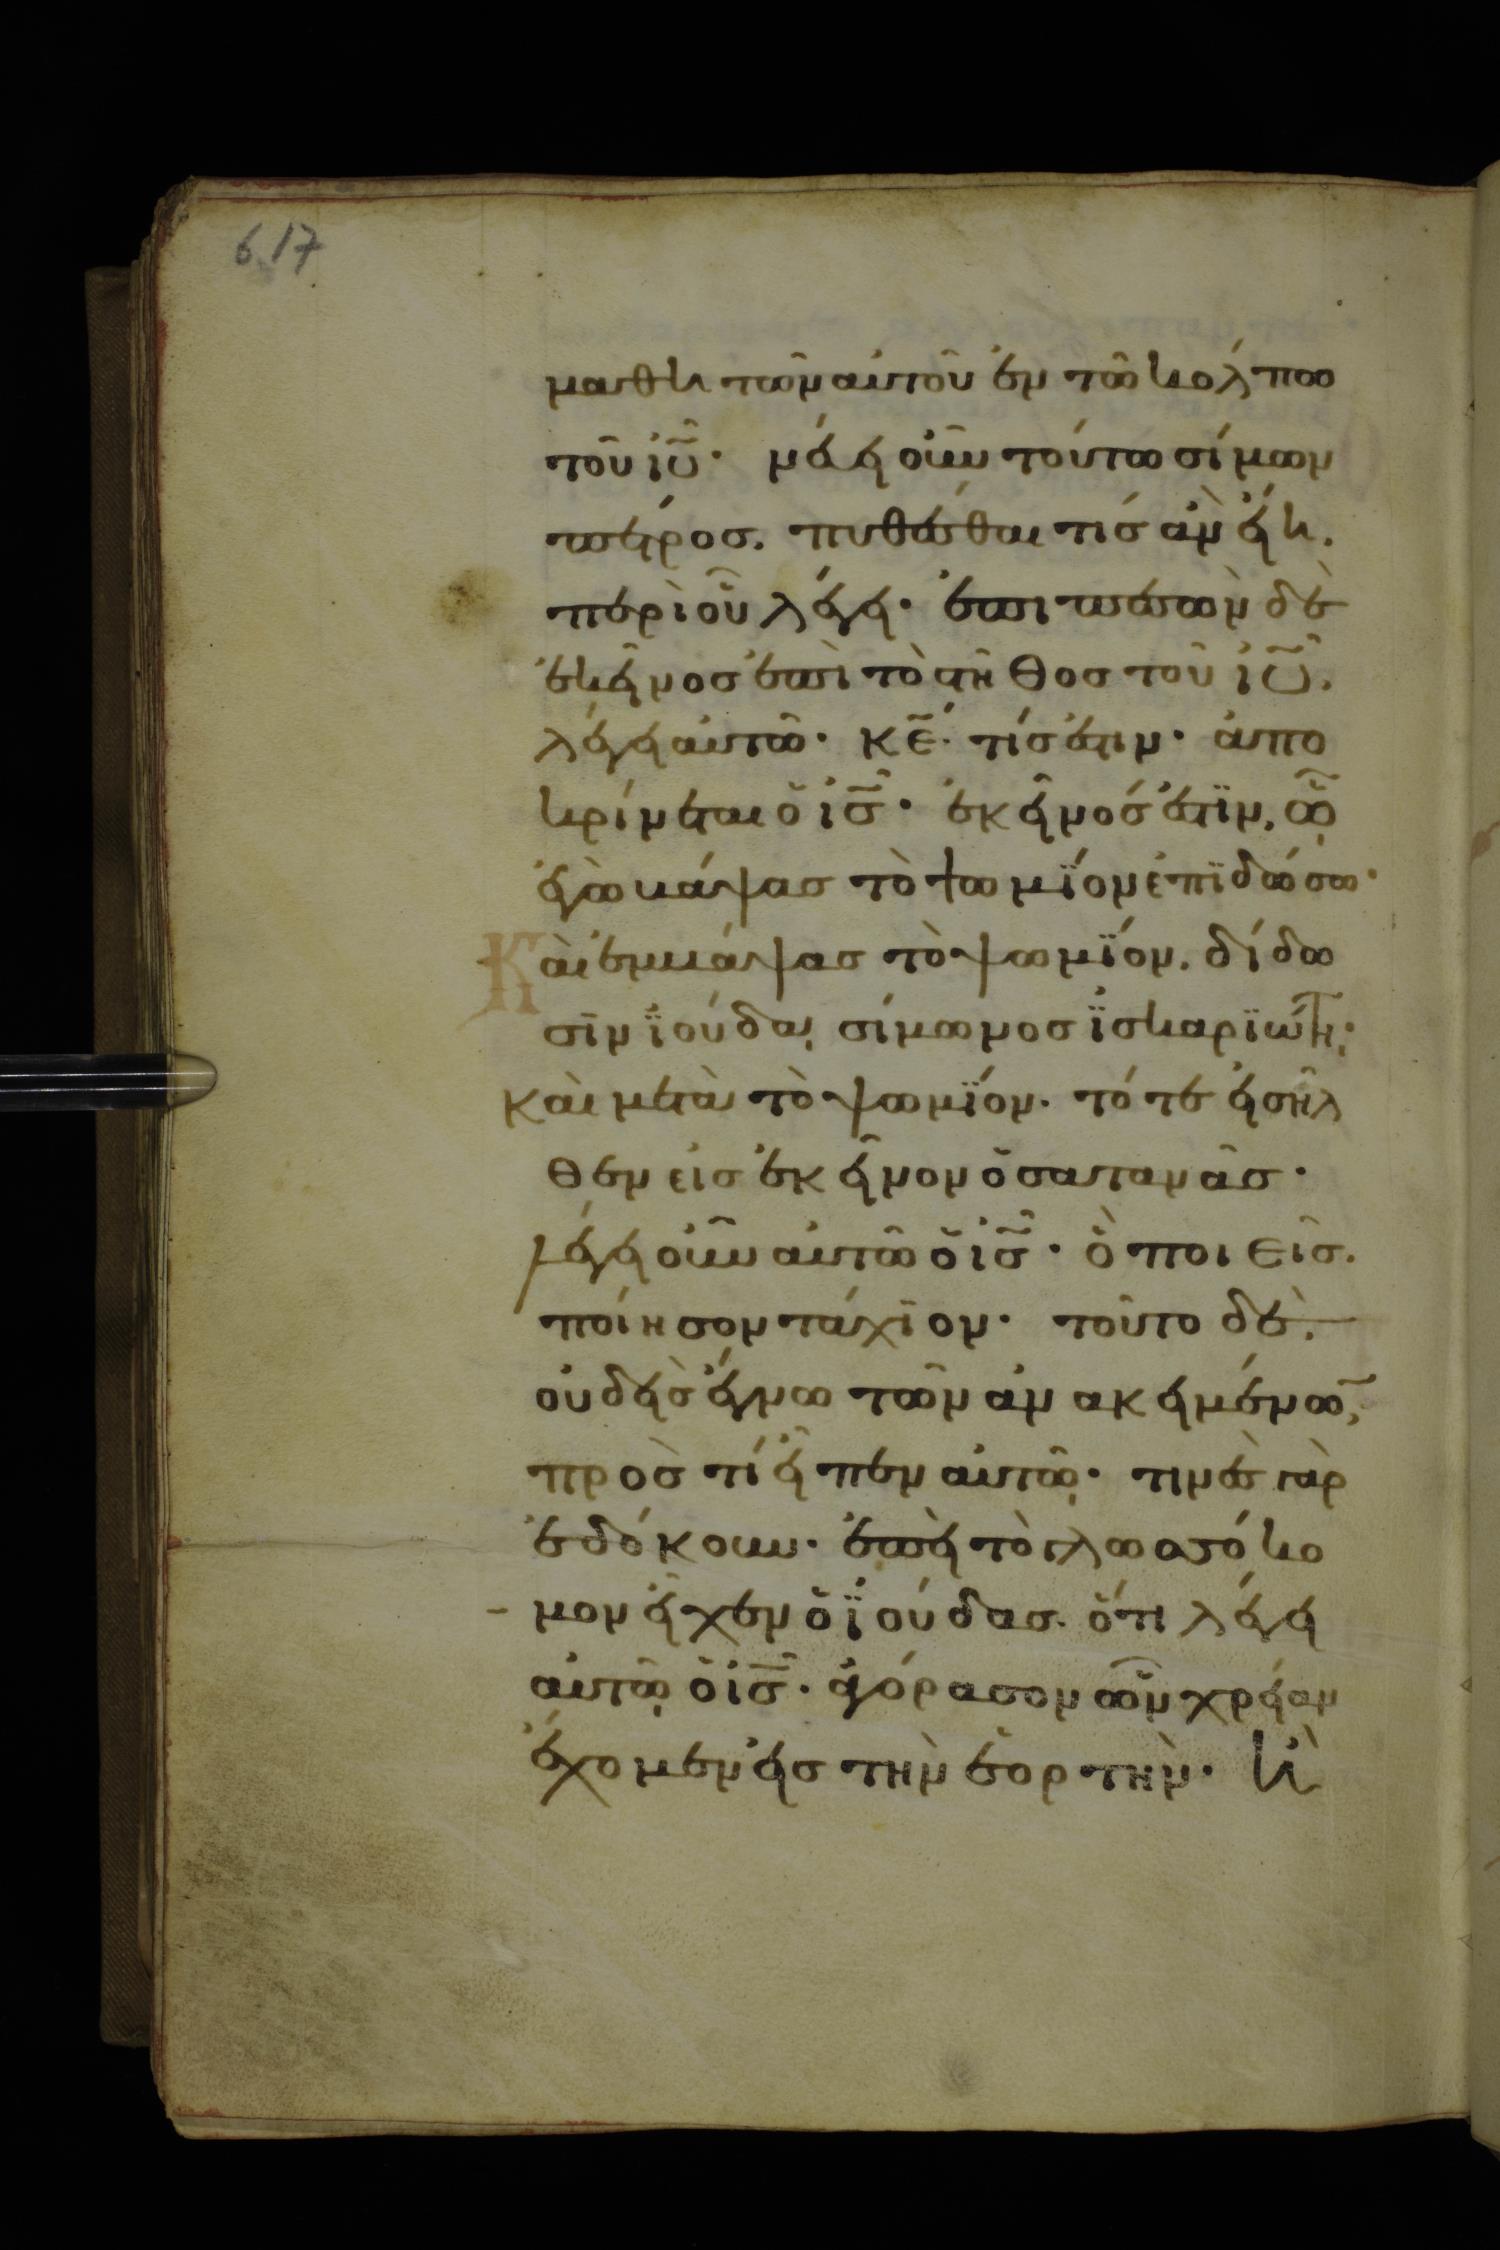 617
μαθητῶν αὐτοῦ ἐν τῶ κολπω
τοῦ ἰῦ· νεύει οὖν τούτω σίμων
πέτρος. πυθέσθαι τίς ἂν εἴη.
περὶ οὗ λέγει· ἐπιπεσὼν δὲ
ἐκεῖνος ἐπὶ τὸ στῆθος τοῦ ἰῦ.
λέγει αὐτῶ· κε̄· τίς ἐστιν· ἀπο
κρίνεται ὁ ἰς̄· ἐκεῖνός ἐστϊν, ὧ
ἐγὼ βάψας τὸ ψωμΐον ἐπϊδώσω·
Καὶ ἐμβάψας τὸ ψωμΐον. δίδω
σϊν ϊούδα, σίμωνος ϊσκαρϊώτη·
Καὶ μετὰ τὸ ψωμΐον. τότε εἰσῆλ
θεν εἰς ἐκεῖνον ὁ σατανᾶς·
λέγει οὖν αὐτῶ ὁ ἰς̄· ὃ ποιεῖς.
ποίησον τάχϊον· τοῦτο δὲ.
οὐδεὶς ἔγνω τῶν ἀνακειμένω̄,
πρὸς τί εἶπεν αὐτῶ· τινὲς γὰρ
ἐδόκουν· ἐπεὶ τὸ γλωσσόκο
μον εἶχεν ὁ ϊούδας. ὅτι λέγει
αὐτῶ ὁ ἰς̄· ἀγόρασον ὧν χρείαν
ἔχομεν εἰς τὴν ἑορτὴν· ἢ